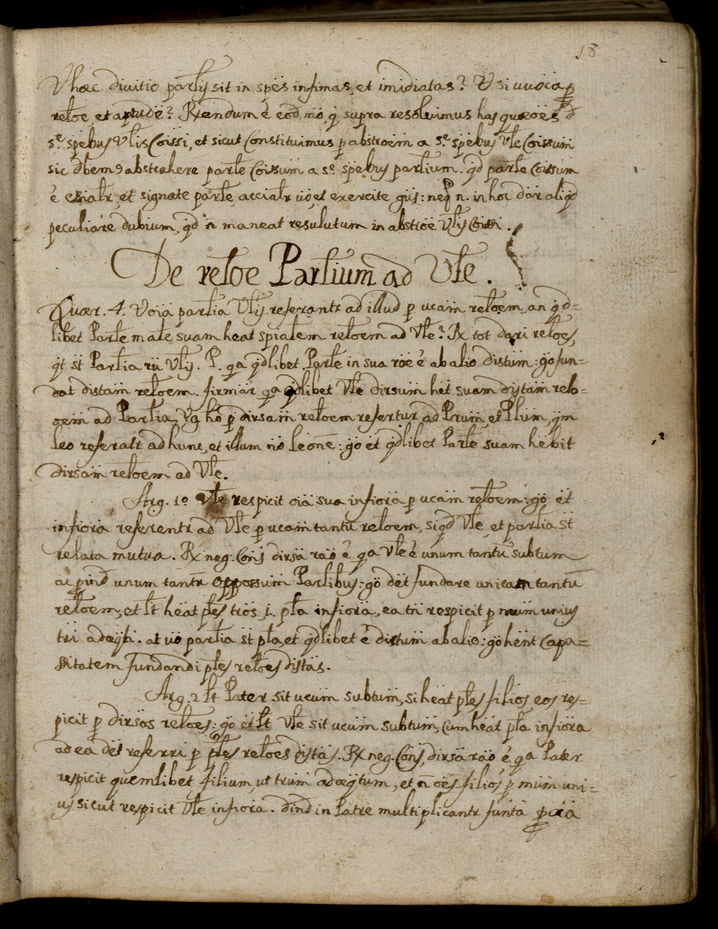 18
Vhæc divitio partis sit in spēs infimas, et imidiatas? V si uvoca p
reloē, et aptitude? Rx̄ endum ē eod mō, q̄ supra resoluimus has quæoēs
sē. spēbus Vlis Coissi, et sicut Constituimus p abstroem a sē. spēbus Vle Coissum
sic dbem9 abstrahere parle Coissum a sē. spēbus partium. qd parle Coissum
et signate parle, accialr uō et exercite neq n. in hoc dari aliqd
peculiare dubium, qd n̄ maneat resulutum in abstroē Vlis
De reloē Partium ad Vle.
Quær. 4. V oīa partia Vlis referantr ad illud p ucam reloem, an qd=
libet Parle māle suam heat spialem reloem ad Vle? Rx tot dari reloēs,
qt st Partia Vlis. P. qa qdlibet Parle in sua roē ē ab alio distum: gō fun=
dat distam reloem. firmar qa qdlibet Vle dirsum het suam dstam relo=
oem ad Partia. Va hō p dirsam reloem refertur ad Prum, et Plum, qm
Leo referatr ad hunc, et illum nō Leone: gō et qdlibet Parle suam hēbit
dirsam reloem ad Vle.
Arg. 1º Vle respicit oia sua infiora p ucam reloem: gō et
infiora referentr ad Vle p ucam tantu reloem, siqd Vle et partia st
relata mutua. Rx neg. Cons dirsa raō ē qa Vle ē unum tantu subtum
ac pind unum tantr oppossum Partibus: gō det fundare unicam tantu
reloem, et lt heat ples tros j. pla infiora, ea tn respicit p mūm unius
tri adæqti. at uō partia st pla, et qdlibet ē distum ab alio: gō hent Capa=
sitatem fundandi ples reloēs distas.
Arg. 2 lt Pater sit ucum subtum, si heat ples filios eos res=
picit p dirsos reloēs: gō et lt Vle sit ucum subtum, Cum heat pla infiora
ad ea det referri p ples reloēs distas. Rx neg. Cons, dirsa raō ē qa Pater
respicit quemlibet filium ut trum adæqtum, et n̄ oēs filios p mūm uni=
us sicut respicit Vle infiora. dind in Patre multiplicantr funta